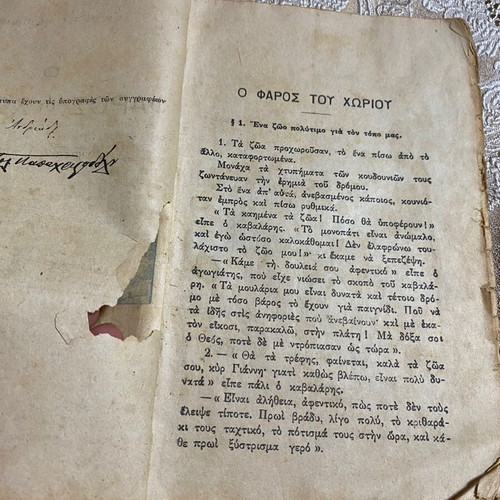 τυπα ἔχουν τὶς ὑπογραφὲς τῶν συγγραφέων
Ο ΦΑΡΟΣ ΤΟΥ ΧΩΡΙΟΥ
§ 1. Ἕνα ζῶο πολύτιμο γιὰ τὸν τόπο μας.
1. Τὰ ζῶα προχωροῦσαν, τὸ ἕνα πίσω ἀπὸ τὸ
ἄλλο, καταφορτωμένα.
Μονάχα τὰ χτυπήματα τῶν κουδουνιῶν τους
ζωντάνευαν τὴν ἐρημιὰ τοῦ δρόμου.
Στὸ ἕνα ἀπ' αὐτά, ἀνεβασμένος κάποιος, κουνιό-
ταν ἐμπρὸς καὶ πίσω ρυθμικά.
« Τὰ καημένα τὰ ζῶα! Πόσο θὰ ὑποφέρουν! »
εἶπε ὁ καβαλάρης. «Τὸ μονοπάτι εἶναι ἀνώμαλο,
καὶ ἐγὼ ὡστόσο καλοκάθομαι! Δὲν ἐλαφρώνω του-
λάχιστο τὸ ζῶο μου!» κι ἔκαμε νὰ ξεπεζέψῃ.
—«Κάμε τὴ δουλειά σου ἀφεντικό» εἶπε ὁ
ἀγωγιάτης, ποὺ εἶχε νιώσει τὸ σκοπὸ τοῦ καβαλά-
ρη. «Τὰ μουλάρια μου εἶναι δυνατὰ καὶ τέτοιο δρό-
μο μὲ τόσο βάρος τὸ ἔχουν γιὰ παιγνίδι. Ποῦ νὰ
τὰ ἰδῆς στὶς ἀνηφοριὲς ποὺ ἀνεβαίνουν καὶ μὲ ἑκα-
τὸν εἴκοσι, παρακαλῶ, στὴν πλάτη! Μὰ δόξα σοι
ὁ Θεός, ποτὲ δὲ μὲ ντρόπιασαν ὡς τώρα».
2. — «Θὰ τὰ τρέφῃς, φαίνεται, καλὰ τὰ ζῶα
σου, κὺρ Γιάννη· γιατὶ καθὼς βλέπω, εἶναι πολὺ δυ-
νατά» εἶπε πάλι ὁ καβαλάρης.
—«Εἶναι ἀλήθεια, ἀφεντικό, πὼς ποτὲ δὲν τοὺς
ἔλειψε τίποτε. Πρωὶ βράδυ, λίγο πολύ, τὸ κριθαρά-
κι τους ταχτικό, τὸ πότισμά τους στὴν ὥρα, καὶ κά-
θε πρωὶ ξύστρισμα γερό».